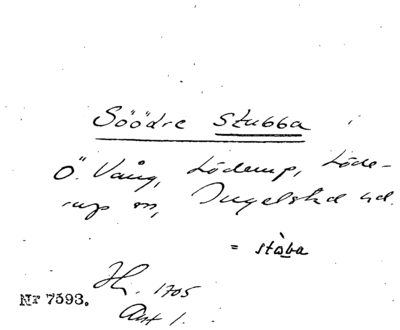 Söödre Stubba
Ö. Vång, Löderup, Löde-
rup sn, Ingelstad hd.
= stàba
Hl. 1705
Akt 1.
Nr 7593.